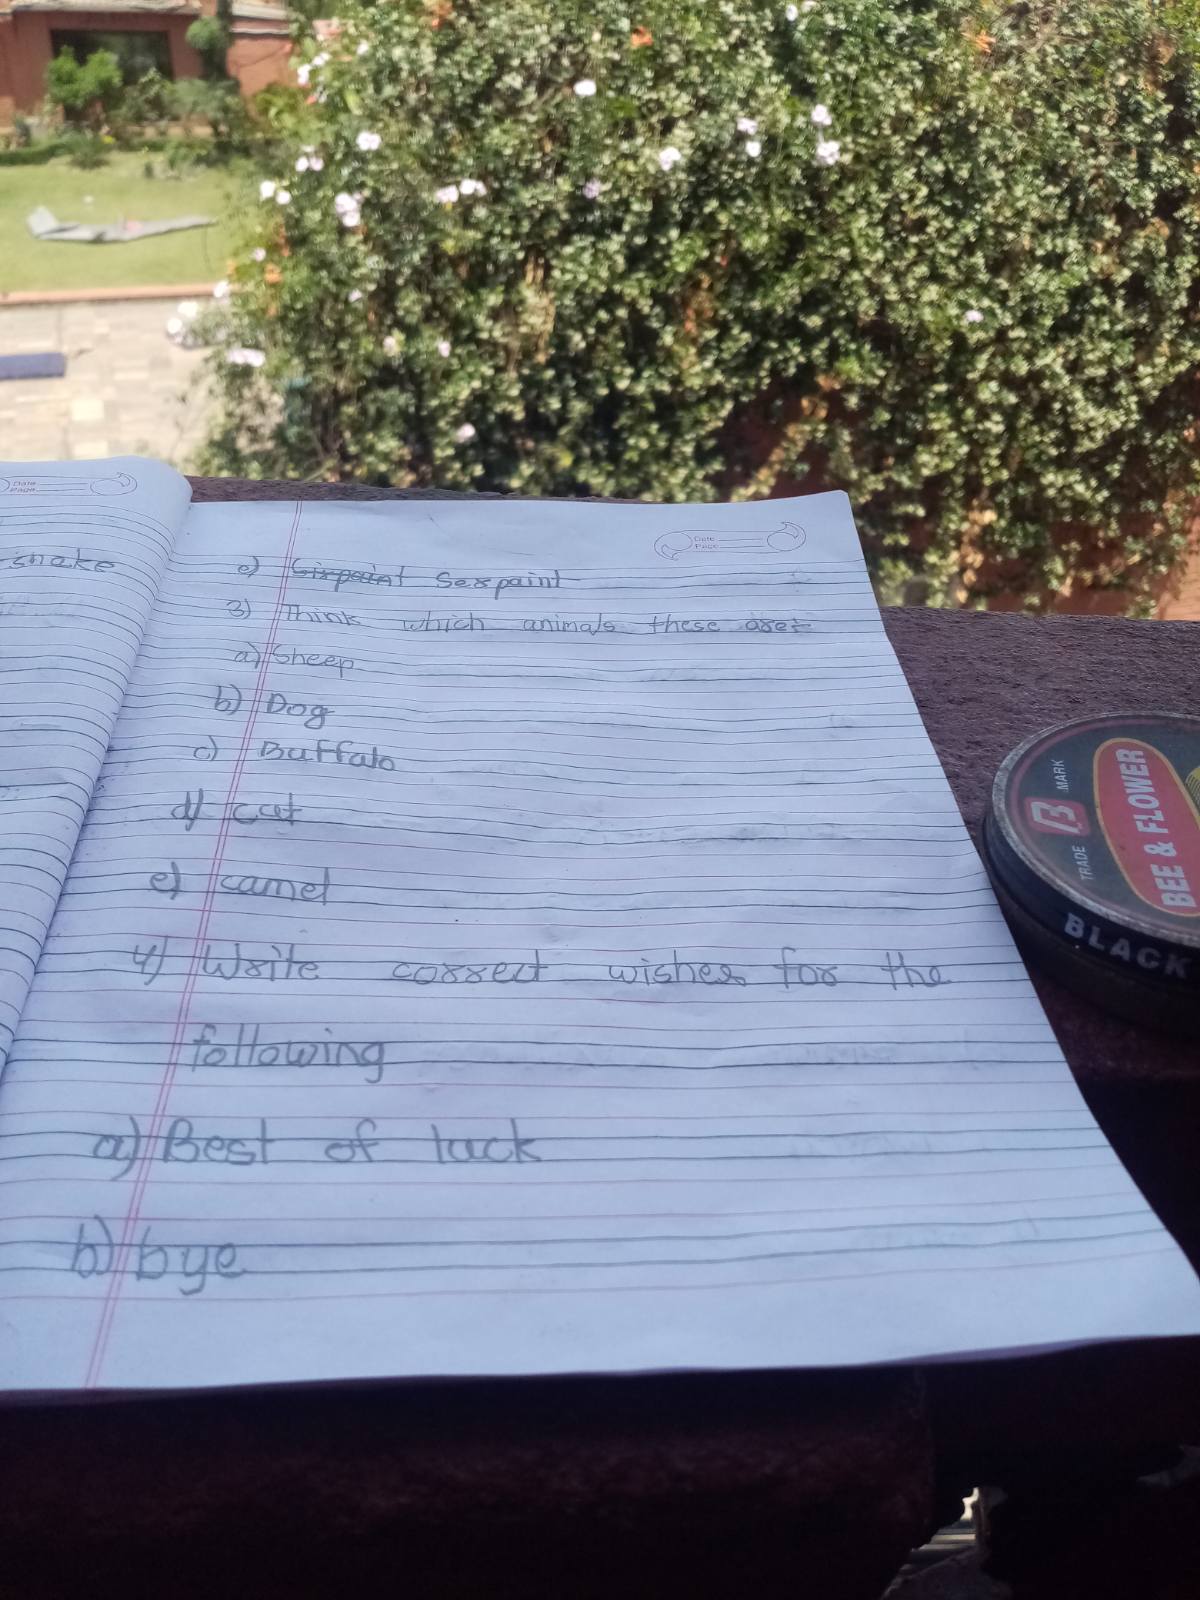 snake
Date
Page
Date
Page
e) Sirpaint Serpaint
3) Think which animals these are:
a) Sheep
b) Dog
c) Buffalo
d) cat
e) camel
4) Write correct wishes for the
following
a) Best of luck
b) bye
TRADE B MARK
BEE & FLOWER
BLACK